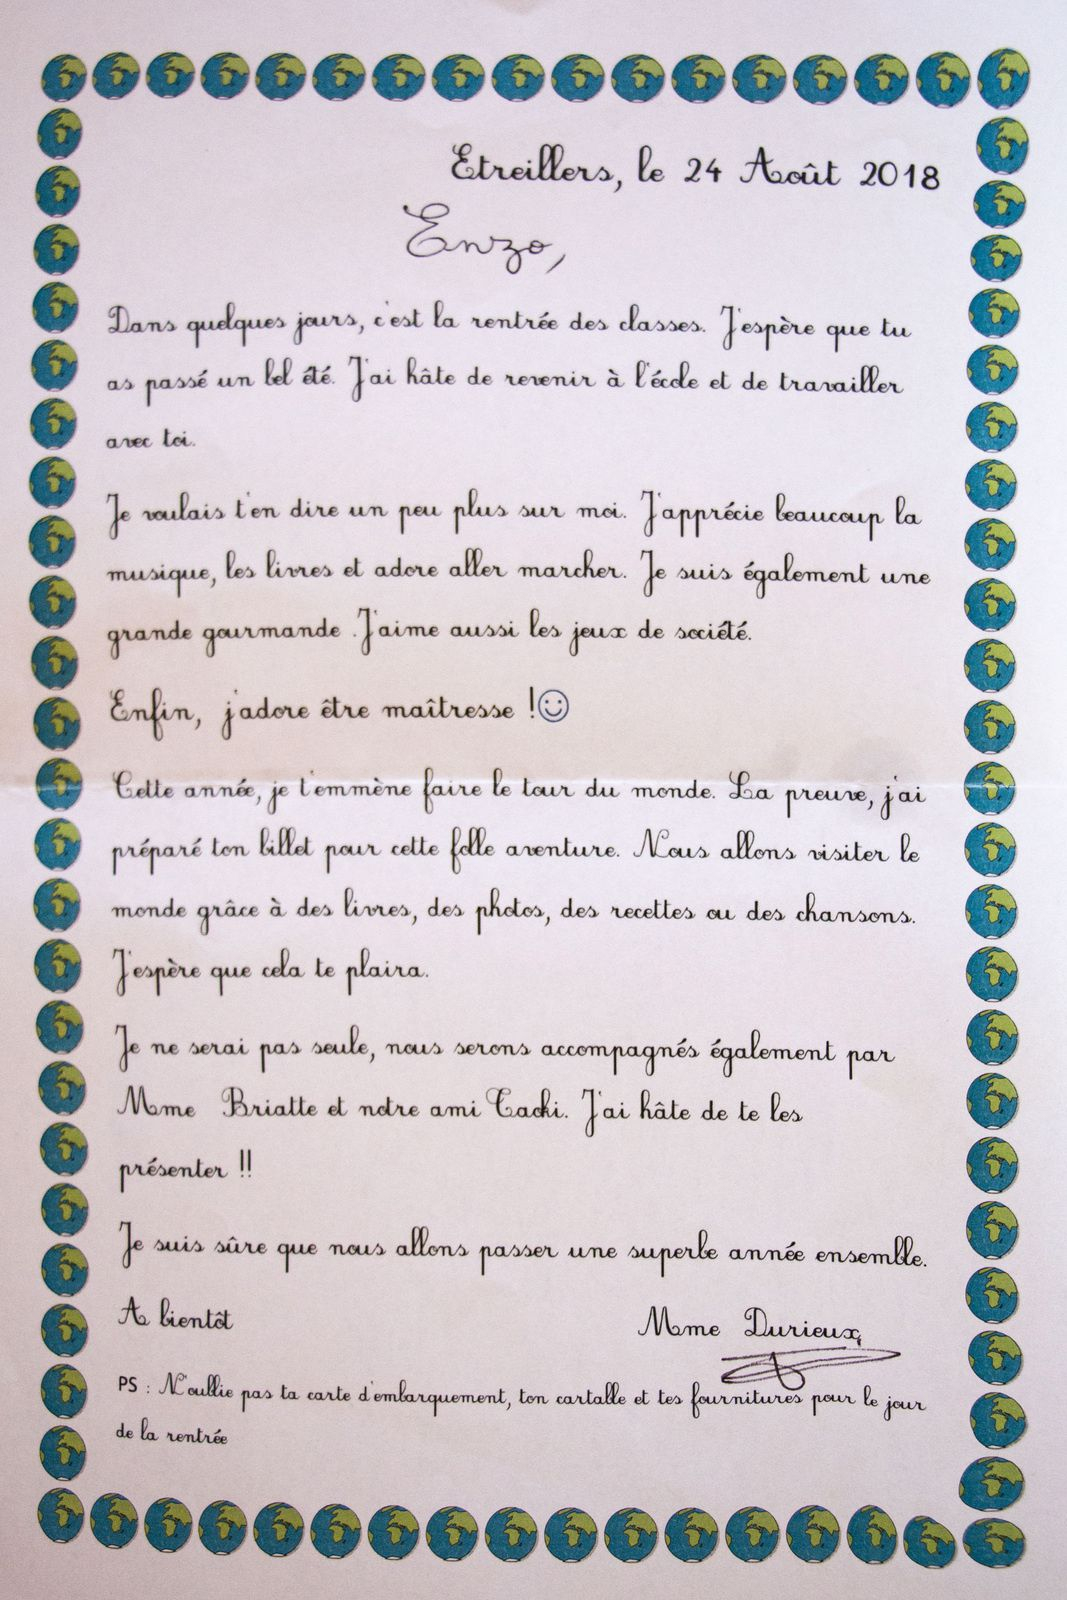 Etreillers, le 24 Août 2018
Enzo,
Dans quelques jours, c'est la rentrée des classes. J'espère que tu
as passé un bel été. J'ai hâte de revenir à l'école et de travailler
avec toi.
Je voulais t'en dire un peu plus sur moi. J'apprécie beaucoup la
musique, les livres et adore aller marcher. Je suis également une
grande gourmande .J'aime aussi les jeux de société.
Enfin, j'adore être maîtresse !☺
Cette année, je t'emmène faire le tour du monde. La preuve, j'ai
préparé ton billet pour cette folle aventure. Nous allons visiter le
monde grâce à des livres, des photos, des recettes ou des chansons.
J'espère que cela te plaira.
Je ne serai pas seule, nous serons accompagnés également par
Mme Briatte et notre ami Tacki. J'ai hâte de te les
présenter !!
Je suis sûre que nous allons passer une superbe année ensemble.
A bientôt
Mme Durieux
PS : N'oublie pas ta carte d'embarquement, ton cartable et tes fournitures pour le jour
de la rentrée